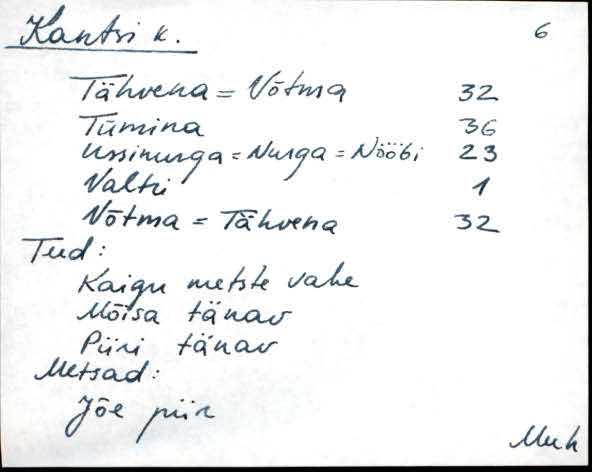 Kantsi k. 6
Tähvena = Võtma 32
Tümina 36
Ussinurga = Nurga = Nööbi 23
Valtri 1
Võtma = Tähvena 32
Teed:
Kaigu metste vahe
Mõisa tänav
Piiri tänav
Metsad:
Jõe piir
Muh